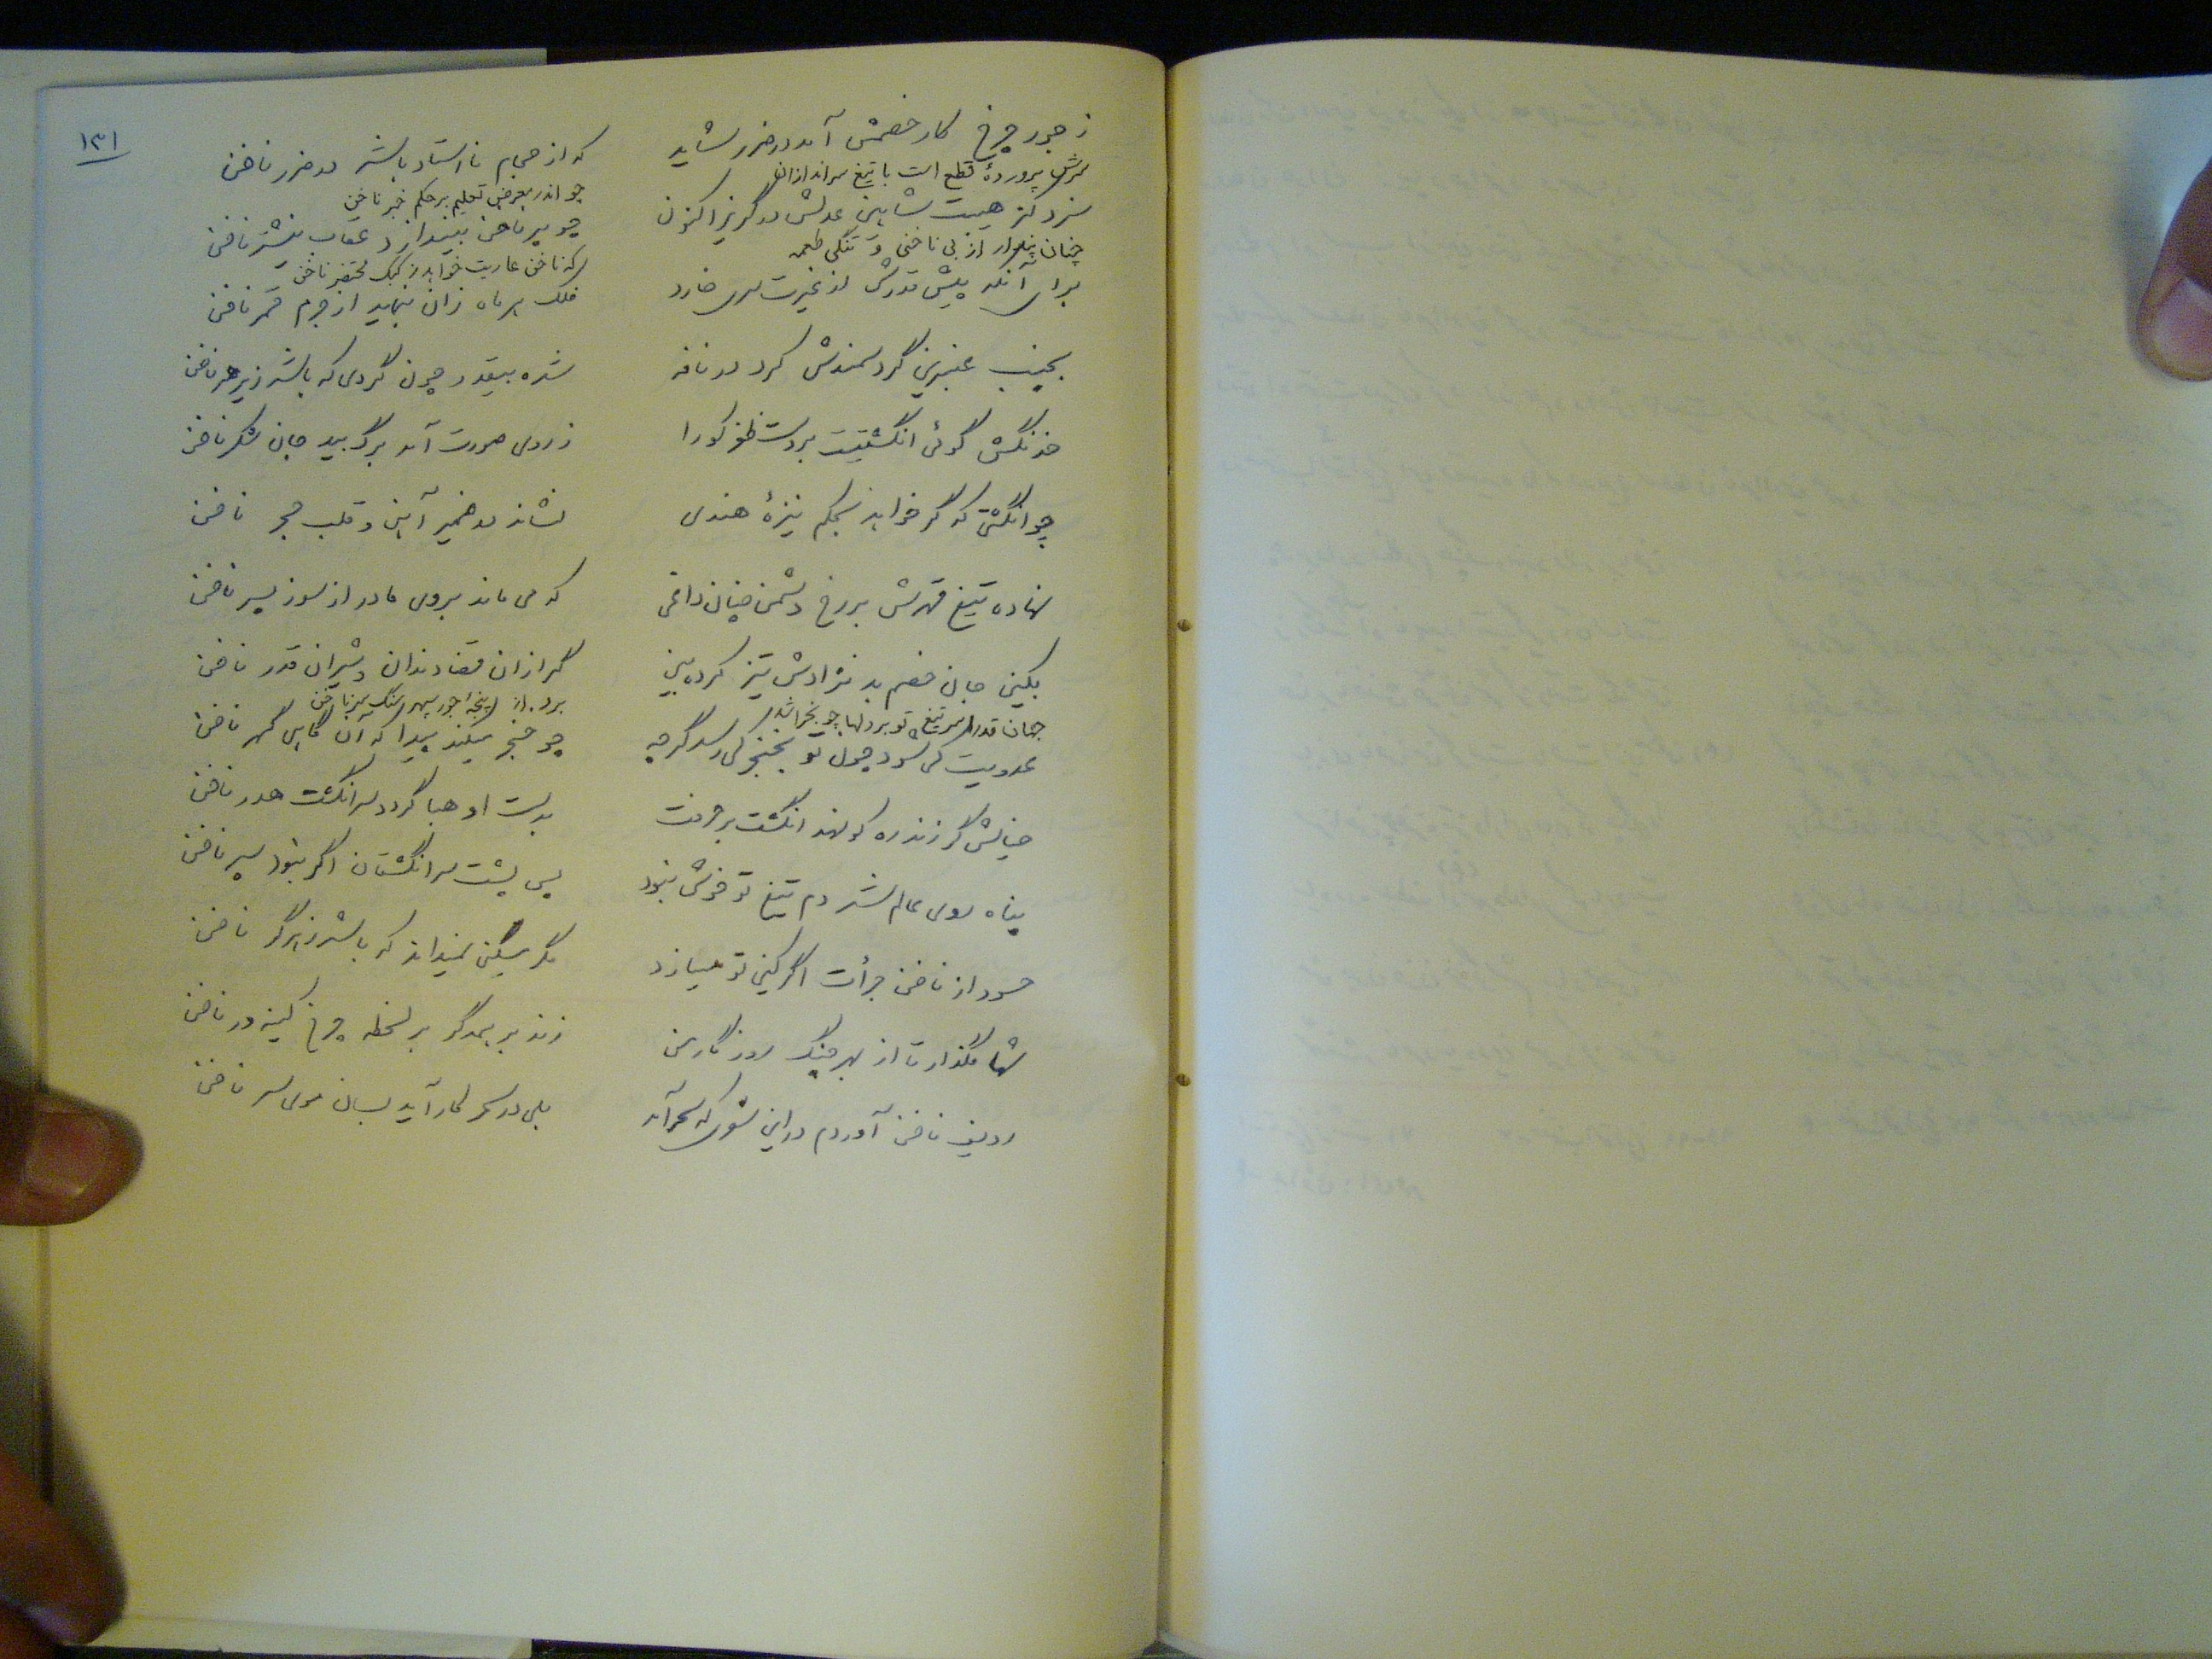 ۱۳۱
ز جور چرخ کار خصمش آمد در ضرر شاید که از حجام نااستاد باشد در ضرر ناخن
سرش پروردهٔ قطع است با تیغ سراندازان چو اندر معرض تعلیم بر حکم خبر ناخن
سزد کز هیبت شاهین عدلش در گریز اکنون چو پر ناخن بیندازد عقاب تیشتر ناخن
چنان از بی ناخنی و تنگی طعمه که ناخن عاریت خواهد ز کبک محتضر ناخن
برای آنکه پیش قدرش از غیرت سری خارد فلک هر ماه زان بنماید از جرم قمر ناخن
بجیب عنبرین گرد سمندش کرد در نافه شده بیقدر چون گردی که باشد زیر هر ناخن
خدنگش گوئی انگشتیست بر دست ظفر کورا ز روی صورت آمد برگ بید جان شکر ناخن
چو انگشتی که گر خواهد بحکم نیزهٔ هندی نشاند در ضمیر آهن و قلب حجر ناخن
نهاده تیغ قهرش بر رخ دشمن چنان داغی که می ماند بروی مادر از سوز پسر ناخن
بکین جان خصم بد نژادش تیز کرده بین گرازان قضا دندان و شیران قدر ناخن
جهان قدرا سر تیغ تو بر دلها چو بخراشد برد از پنجهٔ جور سپهر سنگ بر ناخن
عدویت کی شود چون تو بخنجر کی رسد گرچه چو خنجر میکند پیدا که آن گاهی گهر ناخن
خیالش گر زند ره کو نهد انگشت بر حرفت بدست او هبا گردد سرانگشت هدر ناخن
پناه روی عالم شد دم تیغ تو خوش نبود پس پشت سر انگشتان اگر نبود سپر ناخن
حسود از ناخن جرأت اگر کین تو میبازد مگر مسکین نمیداند که باشد زهرگر ناخن
شها مگذار تا از بهر جنگ روزگار من زند بر یکدگر هر لحظه چرخ کینه ور ناخن
ردیف ناخن آوردم در این شعری که سحر آمد بلی در سحر کار آید بسان موی سر ناخن